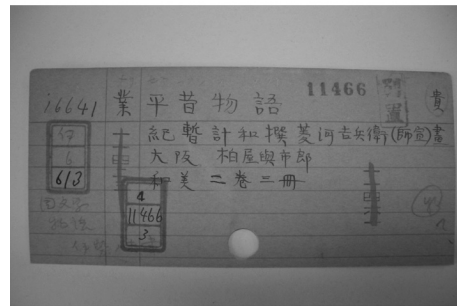 11466 別置
i6641 業平昔物語 貴
紀暫計和撰 菱河吉兵衛(師宣)畫
大阪 柏屋與市郎
和美 二卷三冊
17
6
613
4
11466
3
国文学